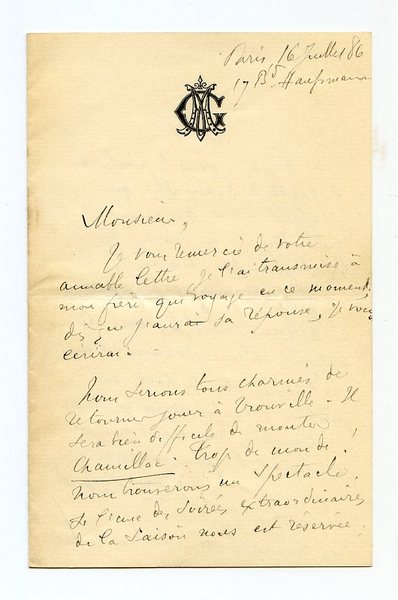 Paris 16 Juillet 86
17 Bd. Haussmann
Monsieur,
Je vous remercie de votre
aimable lettre. Je l'ai transmise à
mon frère qui voyage en ce moment,
dès que j'aurai sa réponse, je vous
écrirai.
Nous serions tous charmés de
retourner jouer à Trouville. Il
sera bien difficile de monter
Chamillac. Trop de monde.
Nous trouverons un spectacle,
si l'une des soirées extraordinaires
de la saison nous est réservée.